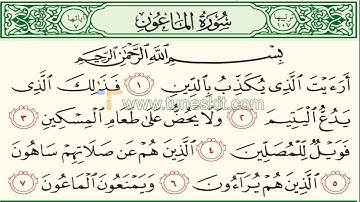 ترتيبها ١٠٧ سُورَةُ المَاعُون آياتها ٧
بِسْمِ اللَّهِ الرَّحْمَٰنِ الرَّحِيمِ
أَرَءَيْتَ الَّذِي يُكَذِّبُ بِالدِّينِ ١ فَذَٰلِكَ الَّذِي
يَدُعُّ الْيَتِيمَ ٢ وَلَا يَحُضُّ عَلَىٰ طَعَامِ الْمِسْكِينِ ٣
فَوَيْلٌ لِّلْمُصَلِّينَ ٤ الَّذِينَ هُمْ عَن صَلَاتِهِمْ سَاهُونَ
٥ الَّذِينَ هُمْ يُرَآءُونَ ٦ وَيَمْنَعُونَ الْمَاعُونَ ٧
www.tuneskit.com